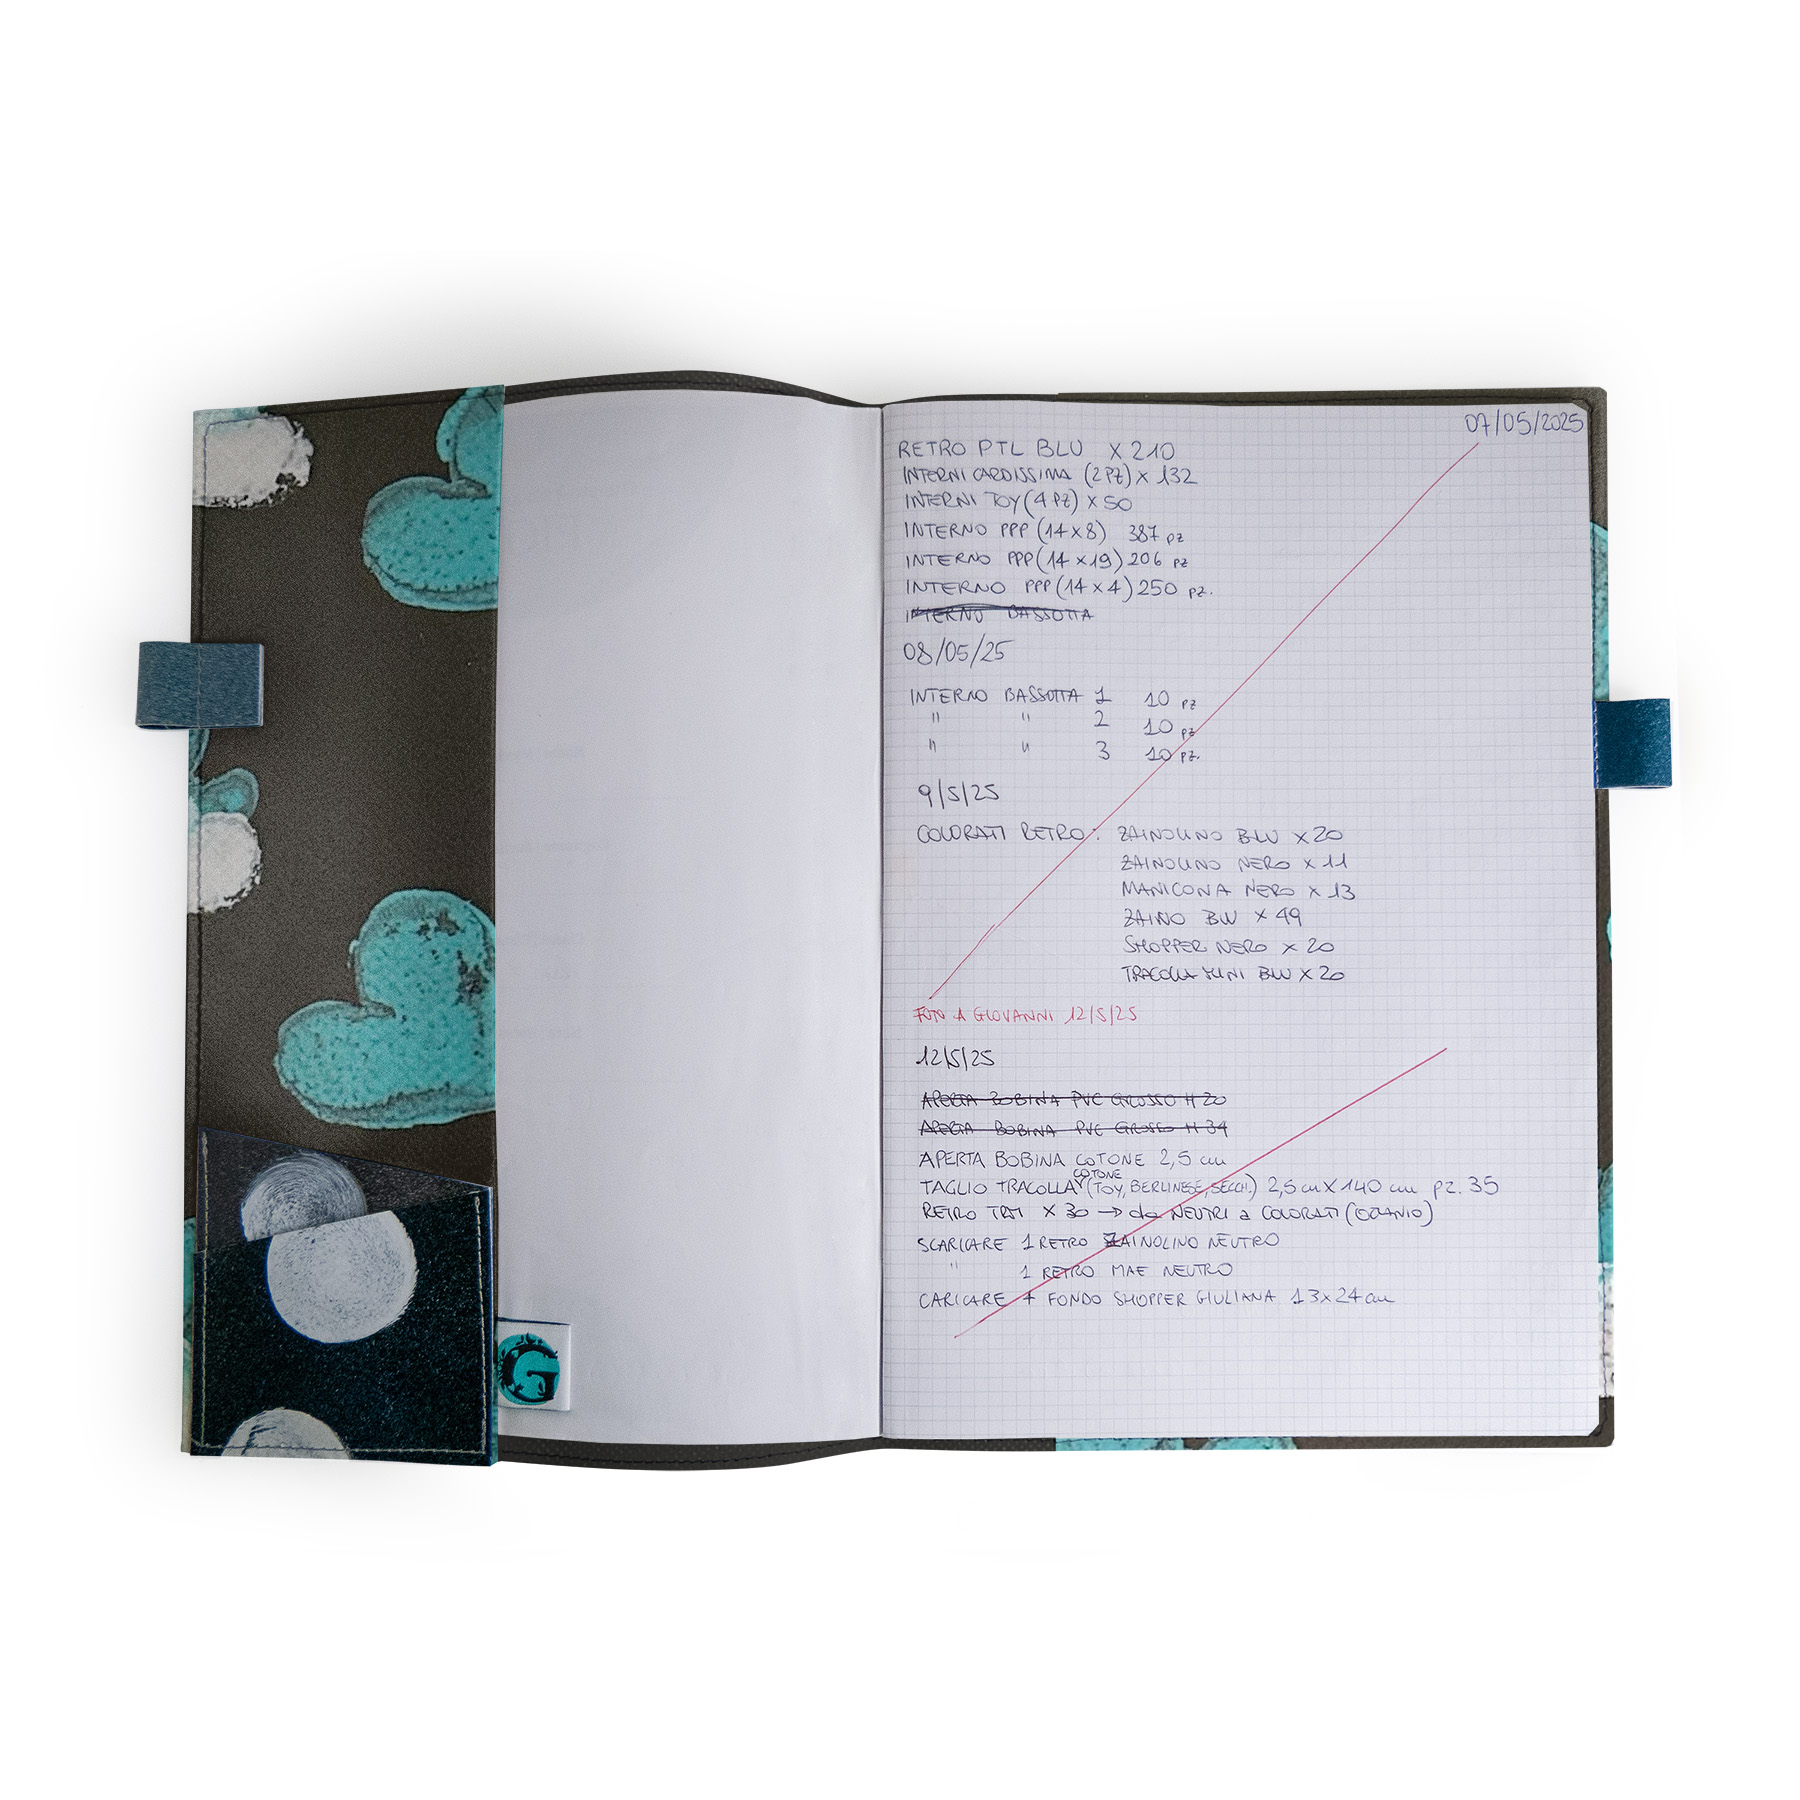 07/05/2025
RETRO PTL BLU X 210
INTERNI CARDISSIMA (2PZ) X 132
INTERNI TOY (4 PZ) X 50
INTERNO PPP (14X8) 387 PZ
INTERNO PPP (14 X 19) 206 PZ
INTERNO PPP (14 X 4) 250 PZ.
INTERNO BASSOTTA
08/05/25
INTERNO BASSOTTA 1 10 PZ
" " 2 10 PZ
" " 3 10 PZ.
9/5/25
COLORATI RETRO: ZAINOLINO BLU X 20
ZAINOLINO NERO X 11
MANICONA NERO X 13
ZAINO BLU X 49
SHOPPER NERO X 20
TRACOLLA MINI BLU X 20
FOTO A GIOVANNI 12/5/25
12/5/25
APERTA BOBINA PVC GROSSO H 20
APERTA BOBINA PVC GROSSO H 34
APERTA BOBINA COTONE 2,5 cm
COTONE
TAGLIO TRACOLLA (TOY, BERLINESE, SECCH.) 2,5 cm X 140 cm pz. 35
RETRO TATI X 30 → da NEUTRI a COLORATI (OTTANIO)
SCARICARE 1 RETRO ZAINOLINO NEUTRO
" 1 RETRO MAE NEUTRO
CARICARE + FONDO SHOPPER GIULIANA 13x24 cm
G